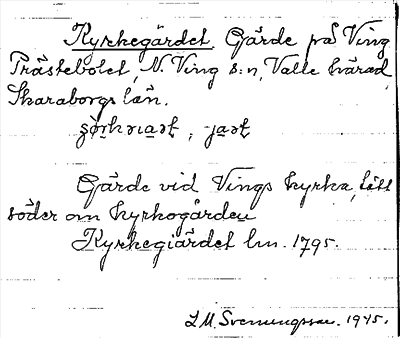 Kyrkegärdet. Gärde på Ving
Prästebolet, N. Ving s:n, Valle härad,
Skaraborgs län.
Gärde vid Vings kyrka, tätt
söder om kyrkogården
Kyrkegiärdet lm. 1795.
I. M. Svenungsson. 1945.